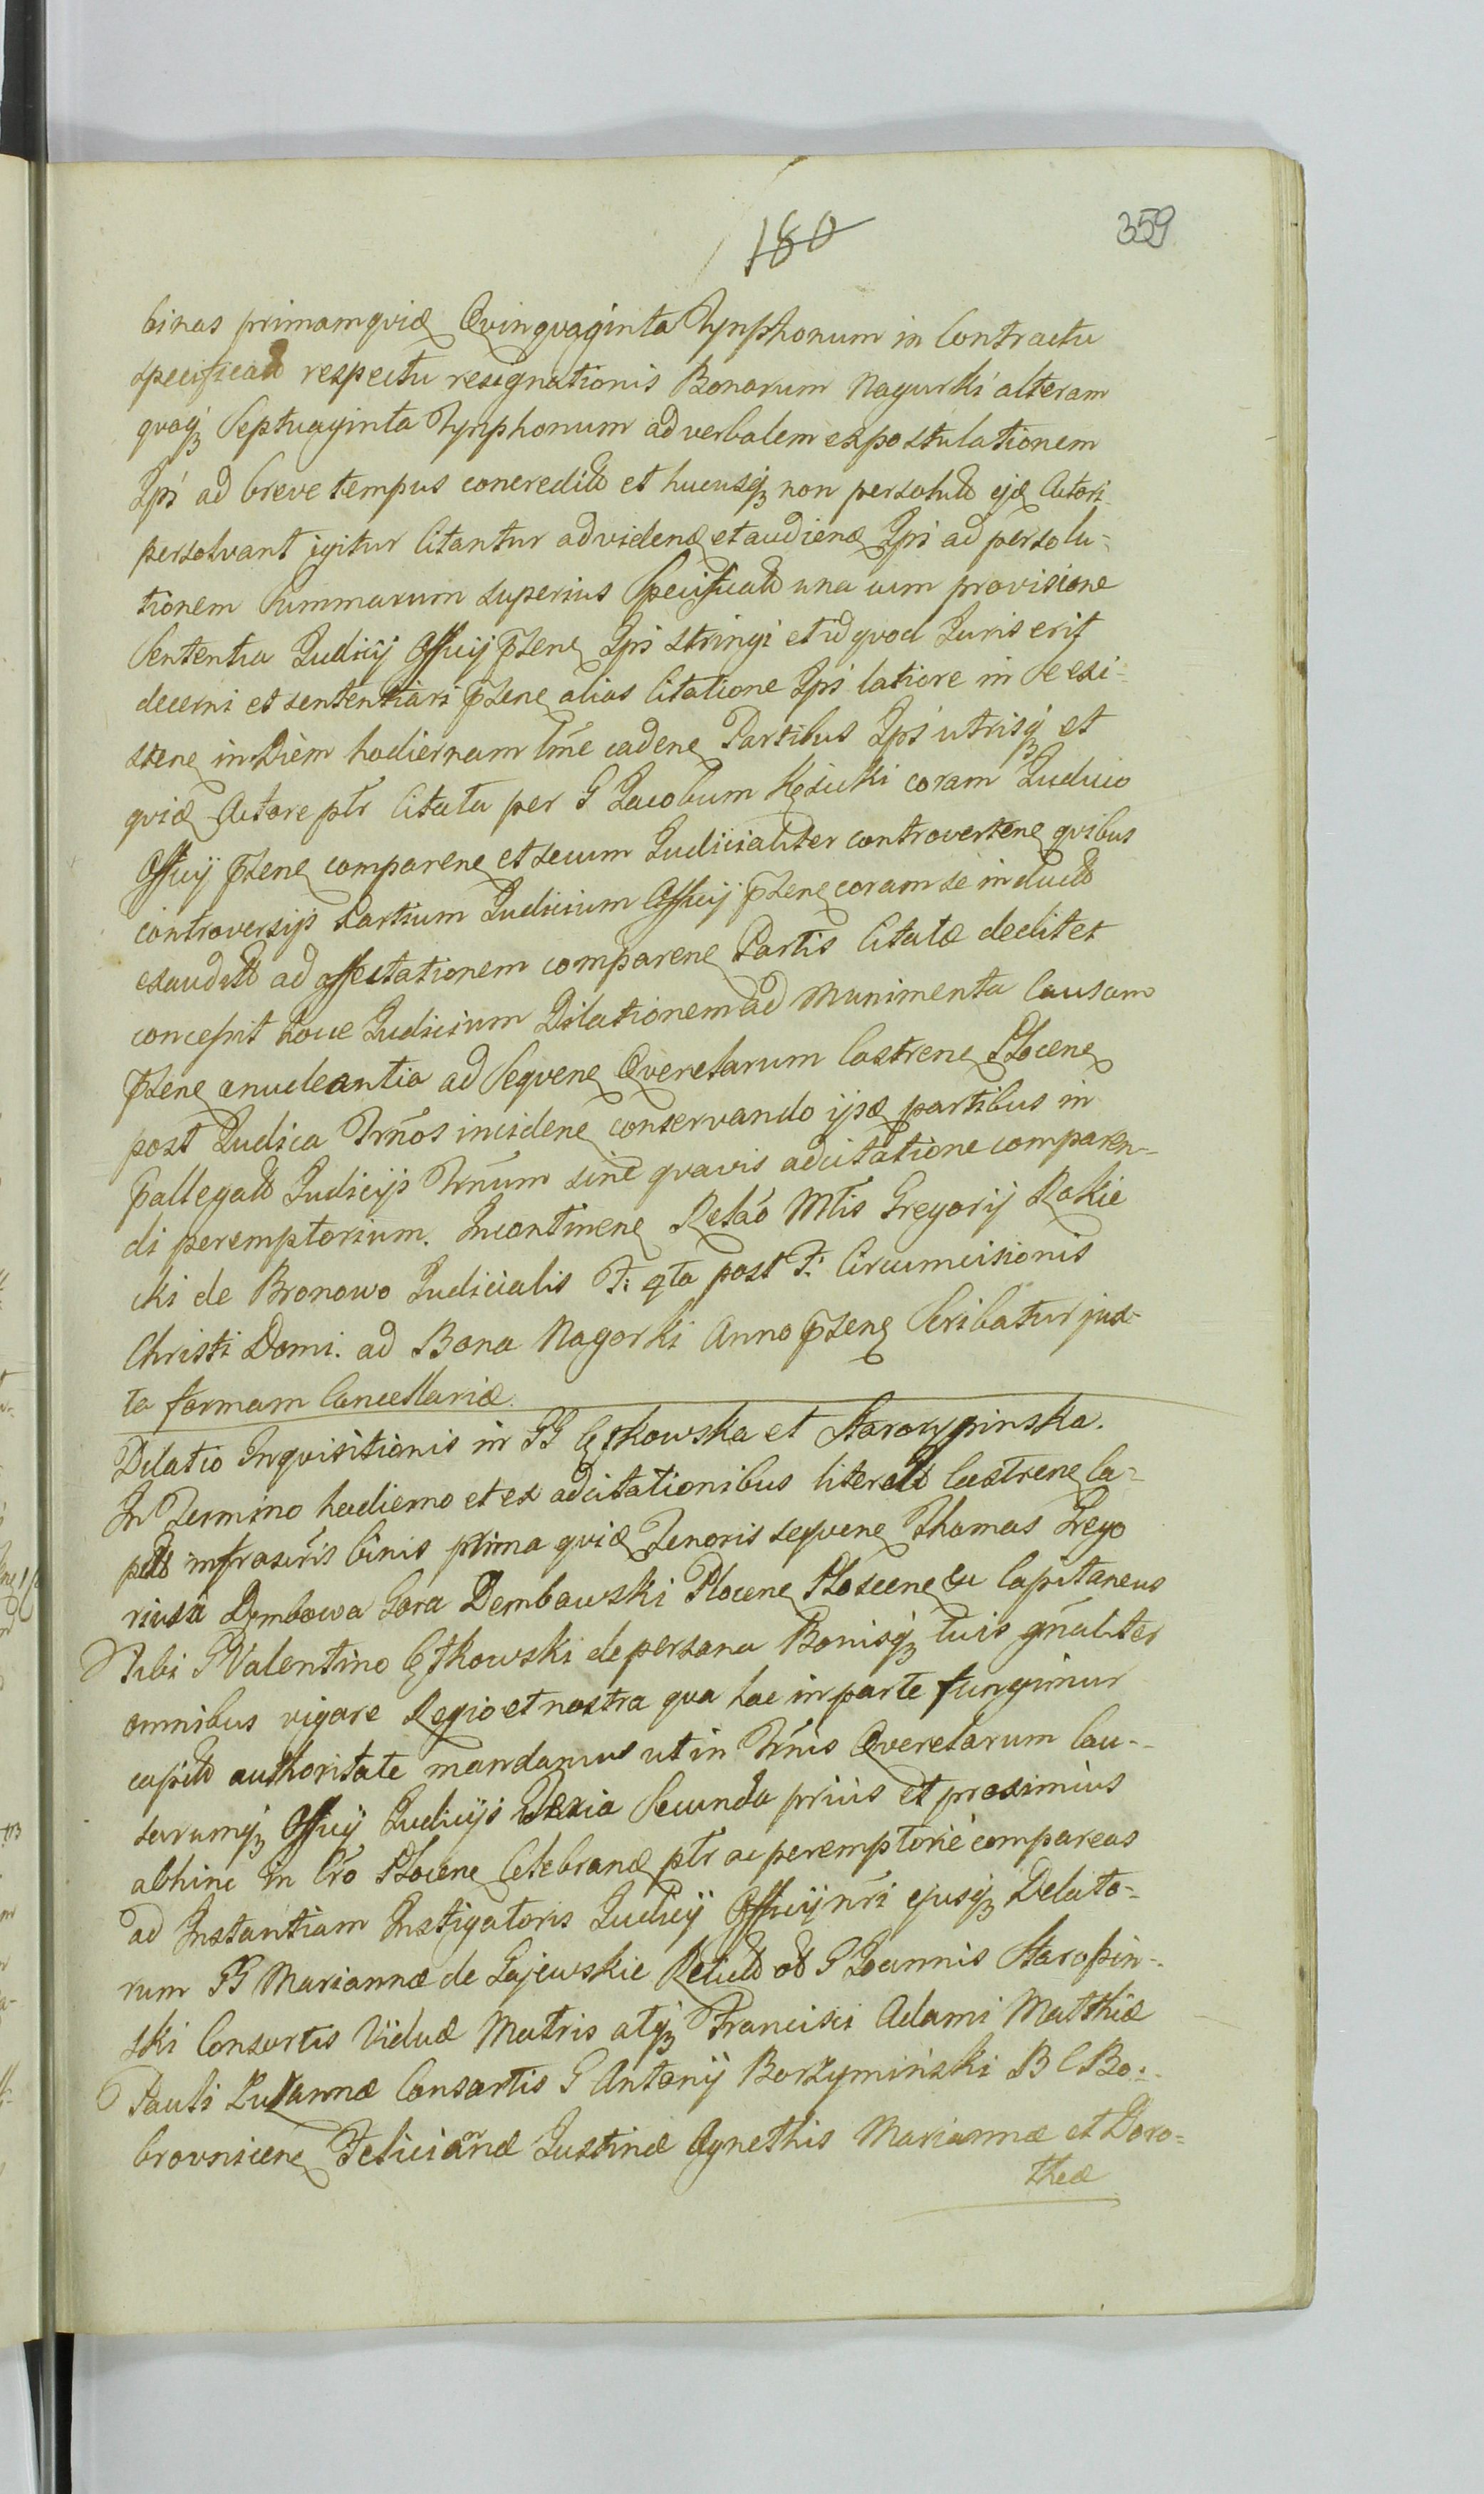 180
359
binas primam quid Qvinqvaginta Tynphonum in Contractu
specificat respectu resignationis Bonorum Nagurki alteram
qvoqz Septuaginta Tynphonum ad verbalem expostulationem
Ipsi ad breve tempus concredit et hucusqz non persolut ejd Actori
persolvant igitur Citantur ad videnđ et audienđ Ipsi ad persolu=
tionem Summarum superius Specificat una cum provisione
Sententia Judicij Officij pñtene Ipsi stringi et id quod Juris erit
decerni et sententiari pñtene alias Citatione Ipsi latiore in se exi=
stene in Diem hodiernam lme cadene Partibus Ipsi utrisqz et
quid Actore ptr Citata per G Jacobum Kęsicki coram Judicio
Officij pñtene comparene et secum Judicialiter controvertene qvibus
controversijs Partium Judicium Officij pñtene coram se induct
exaudit ad affectationem comparene Partis Citatæ dedit et
concessit hocce Judicium Dilationem ad Munimenta Causam
pñtene enucleantia ad Seqvene Qverelarum Castrene Plocene
post Judica Trños incidene conservando ijsd partibus in
pallegat Judicijs Trñum sine qvavis adcitatione comparen=
di peremptorium. Incontinene Relaõ Mtis Gregorij Rokic
cki de Bronowo Judicialis F: qta post F: Circumcisionis
Christi Domi. ad Bona Nagorki Anno pñtene Scribatur jux=
ta formam Cancellariæ.
Dilatio Inqvisitionis in GG Cętkowska et Starorypinska.
In Termino hodierno et ex adcitationibus literat Castrene Ca=
pit infrascris binis prima quid Tenoris seqvene Thomas Grego
rius à Dembowa Gora Dembowski Plocene Ploscene &c Capitaneus
Tibi G Valentino Cętkowski de persona Bonisqz tuis gñaliter
omnibus vigore Regio et nostra qua hac in parte fungimur
capit authoritate mandamus ut in Trñis Qverelarum Cau=
sarumqz Officij Judicijs Feria Secunda prius et proximius
abhinc in Cro Plocene Celebranđ ptr ac peremptorie compareas
ad Instantiam Instigatoris Judicij Officij nri ejusqz Delato=
rum GG Mariannæ de Gajewskie Relict od G Joannis Staropin=
ski Consortis Viduæ Matris atqz Francisci Adami Matthiæ
Pauli Zuzannæ Consortis G Antonij Borzymiński B C Bo=
brovnicene Felicianæ Justinæ Agnethis Mariannæ et Doro=
theæ